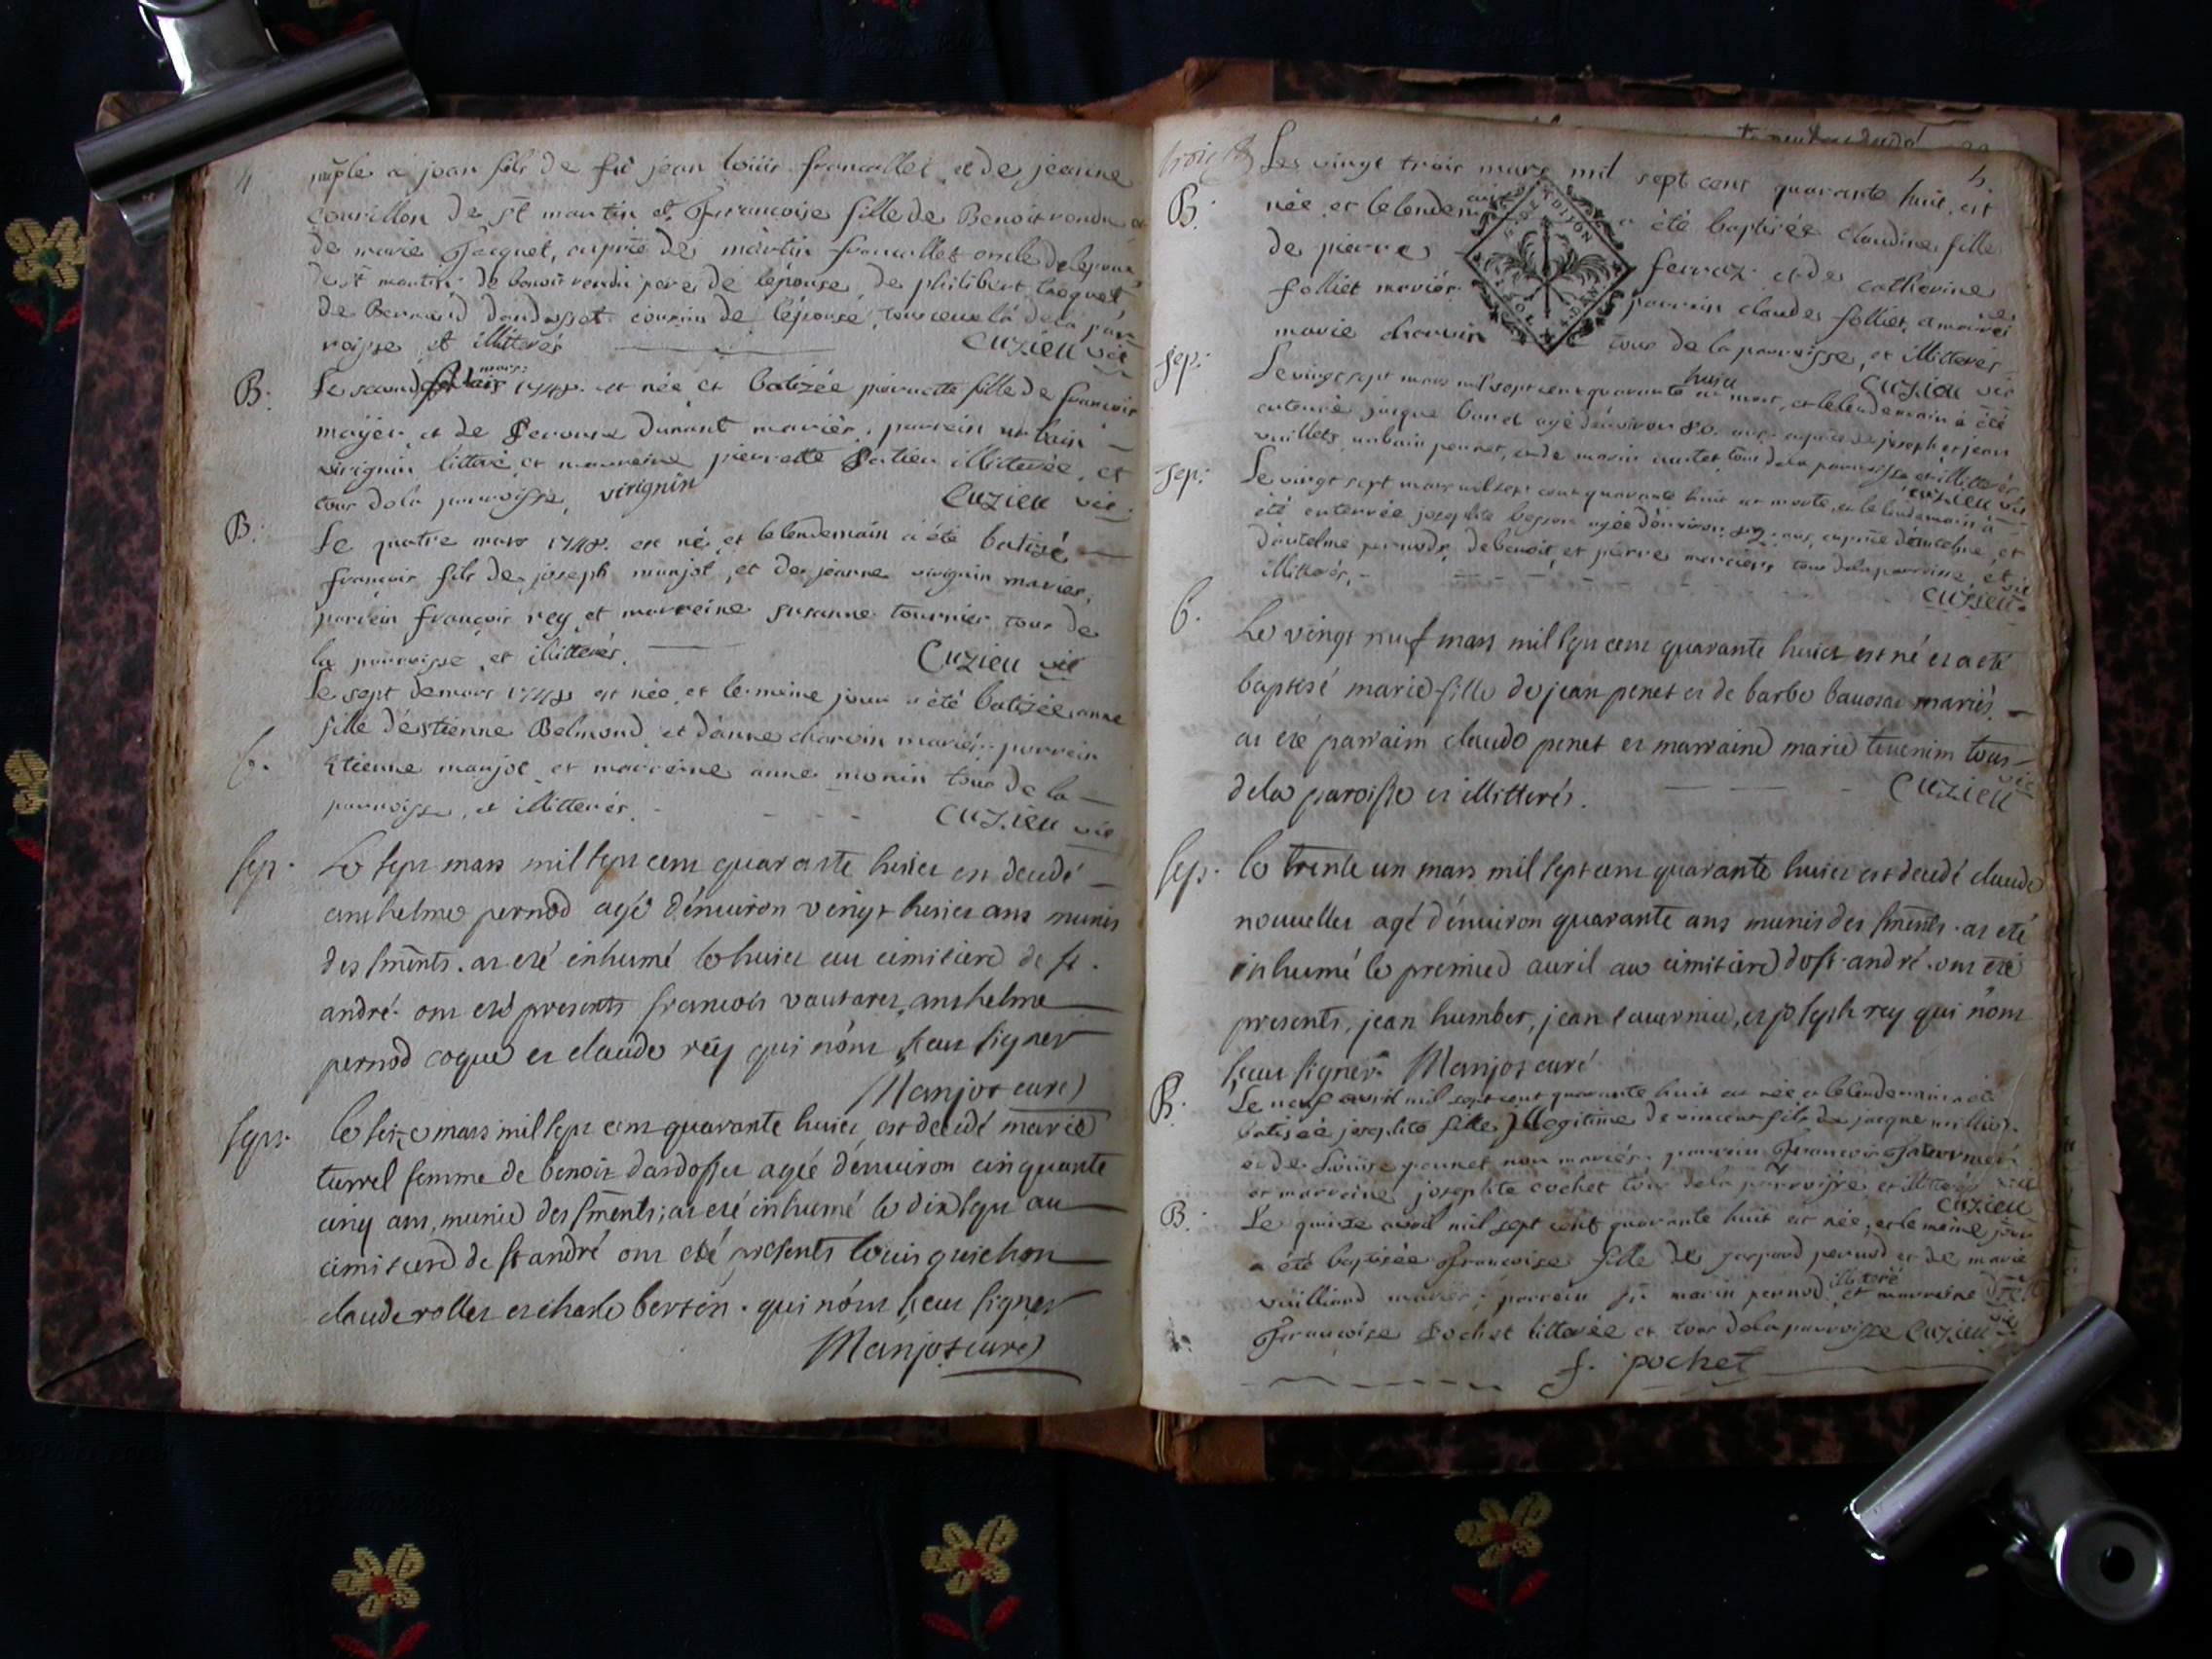 4
à jean fils de fû jean loüis francallet et de jeanne
courillon de st martin et Francoise fille de Benoit vendu et
de marie Jacquet, en pnce de martin francallet oncle de lepoux
de st martin de benoit vendu pere de lépouse, de philibert Jacquet
de Bernard dandosset cousin de lépouse, tous ceux là de la par
roisse et illitterés Cuzieu vic
B. Le second mars 1748. est née et batizée pierrette fille de francois
moyer et de Durant mariés, parrein urbain
virignin litteré, et marreine pierrette illiterée, et
tous de la parroisse, virignin Cuzieu vic
B. Le quatre mars 1748. est né et le lendemain a été batizé
françois fils de joseph manjot, et de jeanne virignin mariés,
parrein françois rey et marreine susanne tournier tous de
la parroisse, et illitterés. Cuzieu vic
Le sept de mars 1748 est née, et le même jour a été batizée anne
fille déstienne Belmond, et dánne charvin mariés, parrein
b. étienne manjot et marreine anne monin tous de la
parroisse, et illitterés. Cuzieu vic
sep. Le sept mars mil sept cent quarante huict est decedé
anthelme pernod agé dénuiron vingt huict ans munis
des sments. at eté inhumé le huict au cimitiere de st.
andré. ont eté presents francois vautaret, anthelme
pernod coque et claude rey qui nónt sceu signer
Manjot curé
sept. le seize mars mil sept cent quarante huict est decedé marie
turrel femme de benoit dardosset agée dénuiron cinquante
cinq ans, munie des sments; at eté inhumé le dix sept au
cimitiere de st andré ont eté presents louis guichon
claude rollet et charle bertin. qui nónt sceu signer
Manjot curé
5.
B. Les vingt trois mars mil sept cent quarante huit, est
née et le lendemain a été baptisée claudine fille
de pierre ferraz et de catherine
folliet mariés. parrain claude folliet, et marreine
marie charvin tous de la parroisse, et illitteres
Cuzieu vic
sep. Le vingt sept mars mil sept cent quarante huict est mort, et le lendemain a été
enterré jacque bonet agé dénviron 80. ans, en pnce de joseph et jean
vuillet, urbain pennet, et de marin tous de la parroisse et illitterés
Cuzieu vic
sep. Le vingt sept mars mil sept cent quarante huit est morte, et le lendemain a
été enterrée josephte besson agée dénviron ans, en pnce dánthelme, et
dánthelme pernod, de benoit, et pierre mercier, tous de la parroisse, et
illitterés, Cuzieu vic
b. Le vingt neuf mars mil sept cent quarante huict est né et a eté
baptisé marie fille de jean penet et de barbe mariés.
at eté parraim claude penet et marraine marie tous
de la paroisse et illitterés. Cuzieu vic
sep. le trente un mars mil sept cent quarante huict est decedé claude
nouuellet agé dénuiron quarante ans munis des sments. at eté
inhumé le premied auril au cimitiere de st. andré. ont eté
presents, jean humbet, jean tauernier, et joseph rey qui nónt
sceu signer. Manjot curé
B. Le neuf avril mil sept cent quarante huit est née et le lendemain a été
batisée josephte fille illegitime de vincent fils de jacque millet
et de Loüise pennet non mariés. parrein Francois Tavernier
et marreine josephte cochet tous de la parroisse et illiterés vic
Cuzieu
B. Le quinze avril mil sept cent quarante huit est née, et le même jour
a été baptisée Francoise fille de gaspard pernod et de marie
vuilliard mariés; parrein sr. marin pernod illiteré et marreine dlle
Francoise Pochet litterée et tous de la parroisse Cuzieu vic
f. pochet